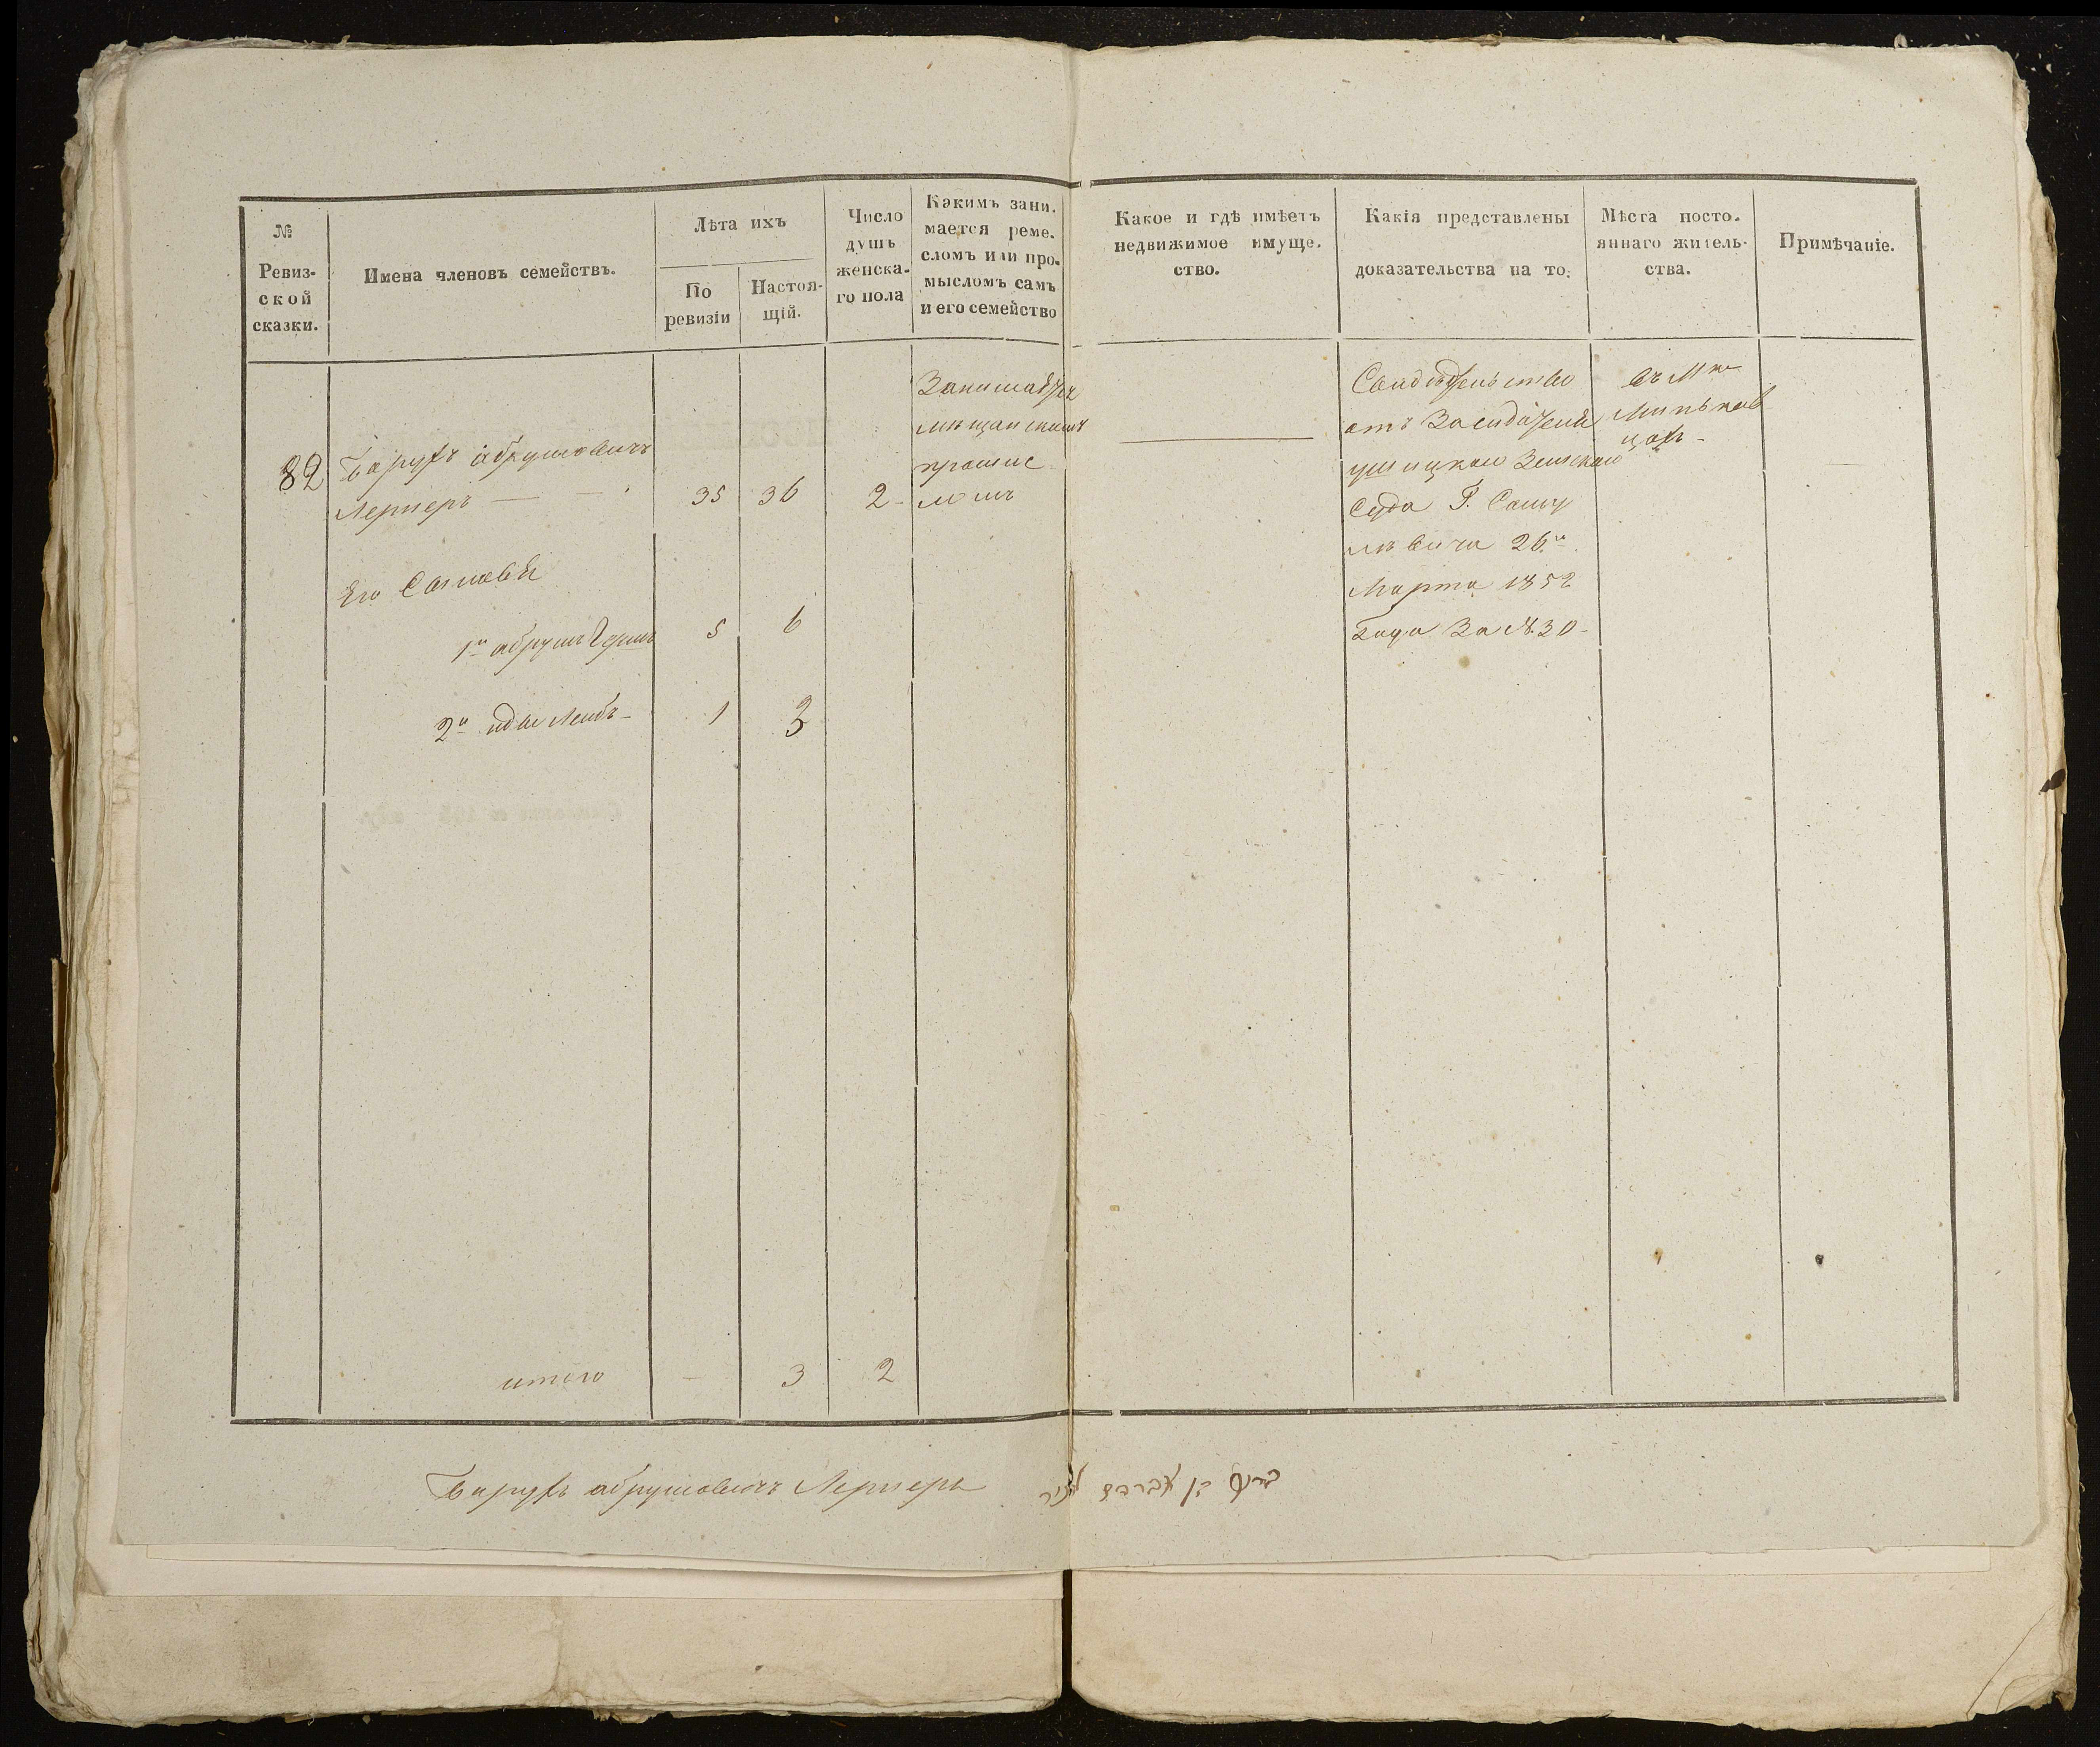 №
Ревиз-
ской
сказки.
Имена членовъ семействъ.
Лѣта ихъ
По
ревизіи
Настоя-
щій.
Число
душъ
женска-
го пола
Какимъ зани-
мается реме-
сломъ или про-
мысломъ самъ
и его семейство
Какое и гдѣ имѣетъ
недвижимое имуще-
ство.
Какія представлены
доказательства на то.
Мѣста посто-
яннаго житель-
ства.
Примѣчаніе.
82
Барухъ абрумовичъ
Лернеръ 35 36 2
мѣщанскимъ
промис
ломъ
Свидѣтельство
отъ Засидателя
ушицкаго Земскаго
Суда Г.
26го
Марта 1852
Года За №30
въ Мкѣ
Миньков
цахъ
Его Сыновья
1й абрумъ Гершъ 5 6
2й Лейбъ 1 3
итого — 3 2
Барухъ абрумовичъ Лернеръ
ברוך בן אברהם לרנר